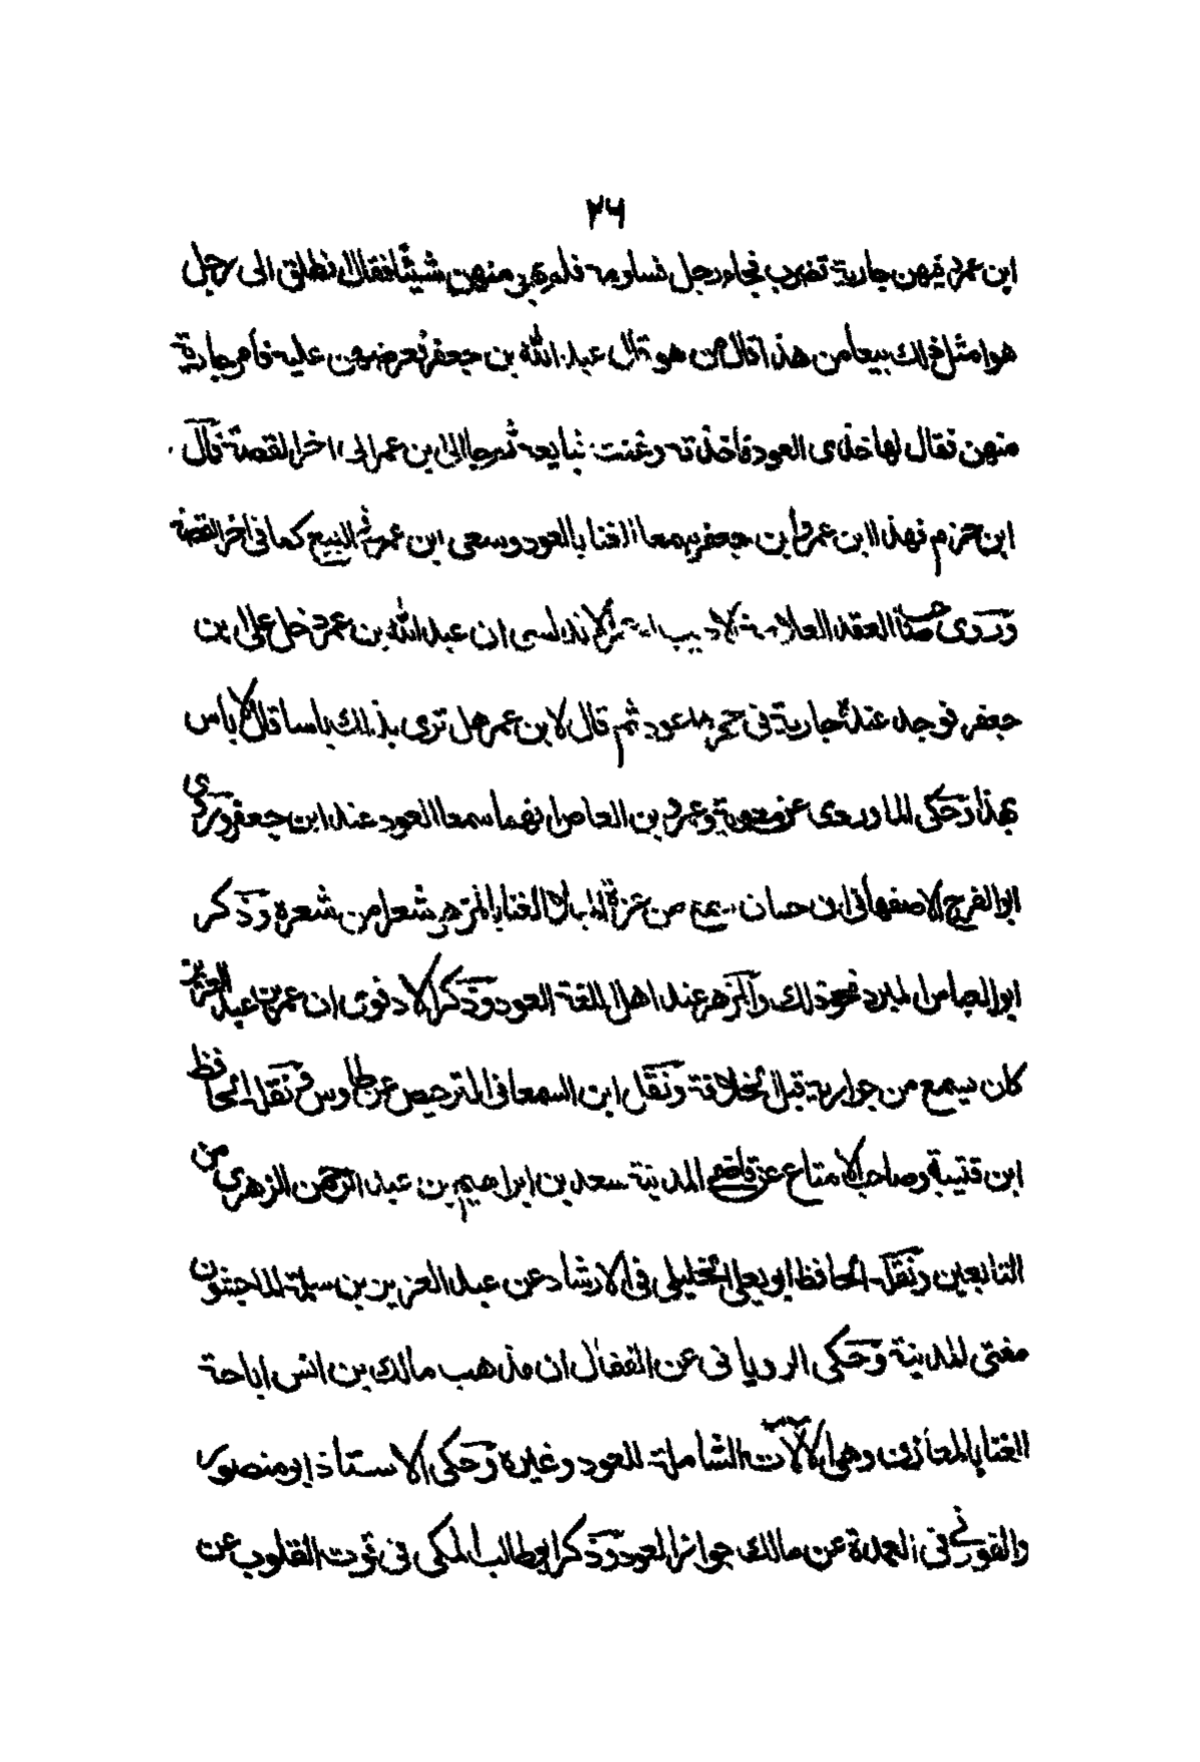 ٢٦
ابن عمر وفيهن جارية تضرب فجاء رجل فساومه فلم يهو منهن شيئا فقال انطلق الى رجل
هو امثل لك بيعا من هذا قال من هو قال عبد الله بن جعفر فعرضهن عليه فأمر جارية
منهن فقال لها خذى العود فأخذته وغنت فبايعه ثم جا الى ابن عمر الى اخر القصة قال
ابن حزم فهذا ابن عمر وابن جعفر سمعا الغنا بالعود وسعى ابن عمر فى البيع كما فى اخر القصة
وروى صاحب العقد العلامة الاديب الاندلسى ان عبد الله بن عمر دخل على ابن
جعفر فوجد عنده جارية فى حجرها عود ثم قال لابن عمر هل ترى بذلك باسا قال لا باس
بهذا وحكى الماوردى عن معوية وعمرو بن العاص انهما سمعا العود عند ابن جعفر وروى
ابو الفرج الاصفهانى ان حسان سمع من عزة الميلا الغنا بالمزهر بشعر من شعره وذكر
ابو العباس المبرد نحو ذلك والمزهر عند اهل اللغة العود وذكر الادفوى ان عمر بن عبد العزيز
كان يسمع من جواريه قبل الخلافة ونقل ابن السمعانى الترخيص عن طاوس ونقل الحافظ
ابن قتيبة وصاحب الامتاع عن قاضى المدينة سعد بن ابراهيم بن عبد الرحمن الزهرى من
التابعين ونقل الحافظ ابو يعلى الخليلى فى الارشاد عن عبد العزيز بن سلمة الماجشون
مفتى المدينة وحكى الرويانى عن القفال ان مذهب مالك بن انس اباحة
الغنا بالمعازف وهى الالات الشاملة للعود وغيره وحكى الاستاذ ابو منصور
والفورانى فى العمدة عن مالك جواز العود وذكر ابو طالب المكى فى قوت القلوب عن